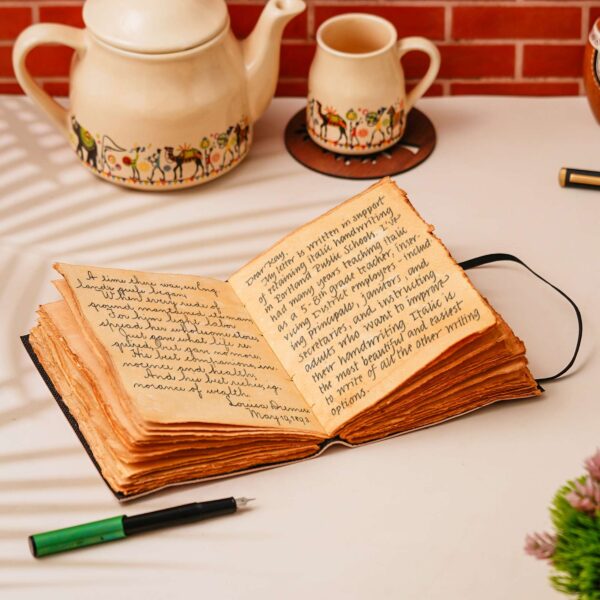 A time there was, ere
land's griefs began,
When every rood of
ground maintain'd its man
For him light labor
spread her wholesome store
Just gave what life re
quired but gave no more
His best companions, in
nocence and health,
And his best riches, ig
norance of wealth.
Louisa
May 10, 1892
Dear Kay,
My letter is written in support
of retaining Italic handwriting
in Portland Public Schools. I've
had many years teaching Italic
as a 5-8th grade teacher, inser-
vicing District employees - includ
ing principals, janitors, and
secretaries, and instructing
adults who want to improve
their handwriting. Italic is
the most beautiful and easiest
to write of all the other writing
options.